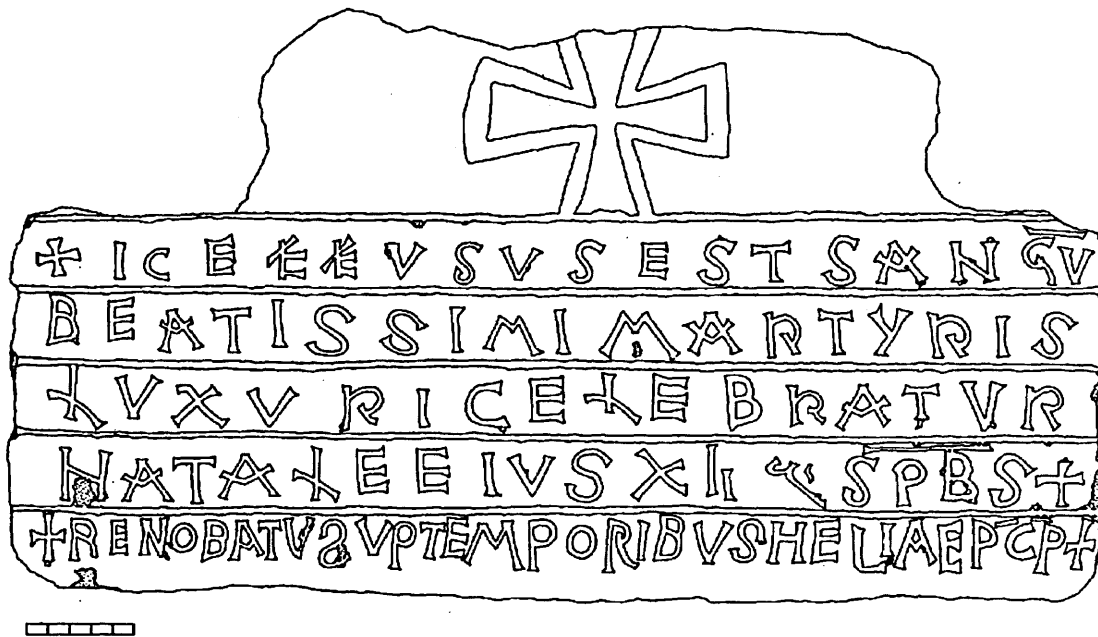 + IC EFFVSVS EST SANGV
BEATISSIMI MARTYRIS
LVXVRI CELEBRATVR
NATALE EIVS XII SPBS +
+ RENOBATV SVP TEMPORIBVS HELIAE PCP +